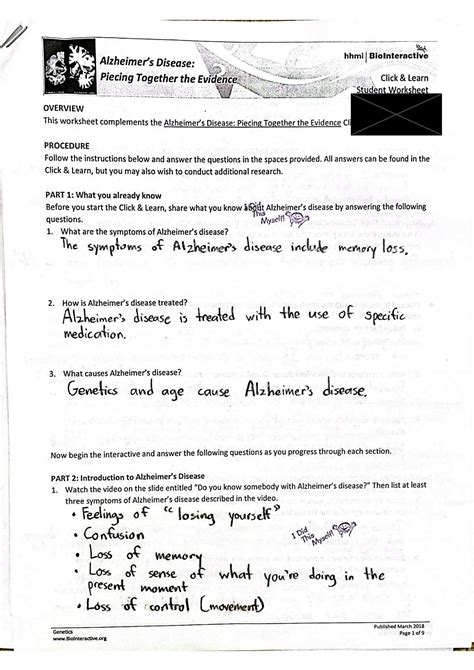 Alzheimer's Disease:
Piecing Together the Evidence
hhmi | BioInteractive
Click & Learn
Student Worksheet
OVERVIEW
This worksheet complements the Alzheimer's Disease: Piecing Together the Evidence Cli
PROCEDURE
Follow the instructions below and answer the questions in the spaces provided. All answers can be found in the
Click & Learn, but you may also wish to conduct additional research.
PART 1: What you already know
Before you start the Click & Learn, share what you know about Alzheimer's disease by answering the following
questions.
I Did This Myself!
1. What are the symptoms of Alzheimer's disease?
The symptoms of Alzheimer's disease include memory loss.
2. How is Alzheimer's disease treated?
Alzheimer's disease is treated with the use of specific
medication.
3. What causes Alzheimer's disease?
Genetics and age cause Alzheimer's disease.
Now begin the interactive and answer the following questions as you progress through each section.
PART 2: Introduction to Alzheimer's Disease
1. Watch the video on the slide entitled "Do you know somebody with Alzheimer's disease?" Then list at least
three symptoms of Alzheimer's disease described in the video.
• Feelings of "losing yourself"
• Confusion
I Did This Myself!
• Loss of memory
• Loss of sense of what you're doing in the
present moment
• Loss of control (movement)
Genetics
www.BioInteractive.org
Published March 2018
Page 1 of 9